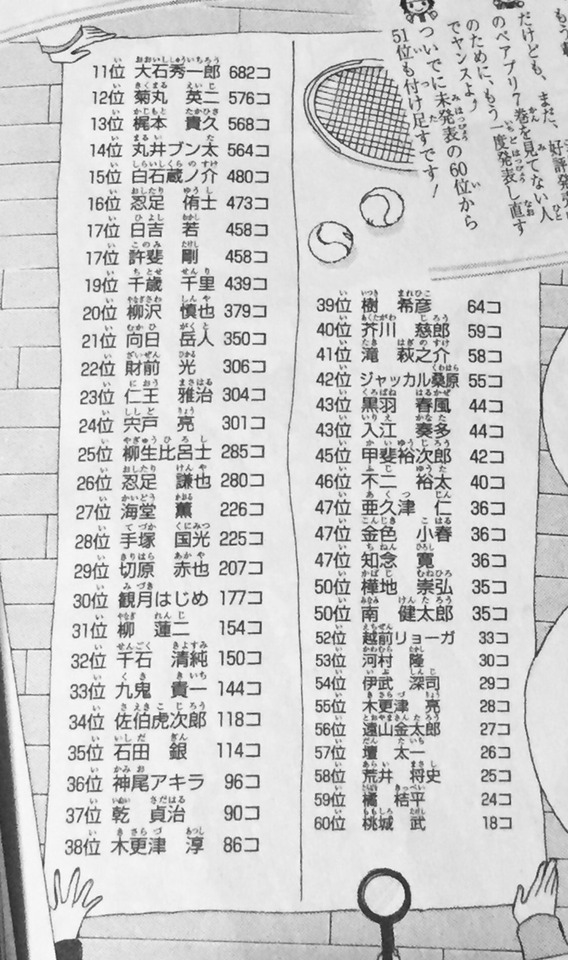 もう
だけども、まだ、好評発売
のペアプリ7巻を見てない人
のために、もう一度発表し直す
でヤンスよ♪
ついでに未発表の60位から
51位も付け足すです!
11位 大石秀一郎 682コ
12位 菊丸 英二 576コ
13位 梶本 貴久 568コ
14位 丸井ブン太 564コ
15位 白石蔵ノ介 480コ
16位 忍足 侑士 473コ
17位 日吉 若 458コ
17位 許斐 剛 458コ
19位 千歳 千里 439コ
20位 柳沢 慎也 379コ
21位 向日 岳人 350コ
22位 財前 光 306コ
23位 仁王 雅治 304コ
24位 宍戸 亮 301コ
25位 柳生比呂士 285コ
26位 忍足 謙也 280コ
27位 海堂 薫 226コ
28位 手塚 国光 225コ
29位 切原 赤也 207コ
30位 観月はじめ 177コ
31位 柳 蓮二 154コ
32位 千石 清純 150コ
33位 九鬼 貴一 144コ
34位 佐伯虎次郎 118コ
35位 石田 銀 114コ
36位 神尾アキラ 96コ
37位 乾 貞治 90コ
38位 木更津 淳 86コ
39位 樹 希彦 64コ
40位 芥川 慈郎 59コ
41位 滝 萩之介 58コ
42位 ジャッカル桑原 55コ
43位 黒羽 春風 44コ
43位 入江 奏多 44コ
45位 甲斐裕次郎 42コ
46位 不二 裕太 40コ
47位 亜久津 仁 36コ
47位 金色 小春 36コ
47位 知念 寛 36コ
50位 樺地 崇弘 35コ
50位 南 健太郎 35コ
52位 越前リョーガ 33コ
53位 河村 隆 30コ
54位 伊武 深司 29コ
55位 木更津 亮 28コ
56位 遠山金太郎 27コ
57位 壇 太一 26コ
58位 荒井 将史 25コ
59位 橘 桔平 24コ
60位 桃城 武 18コ